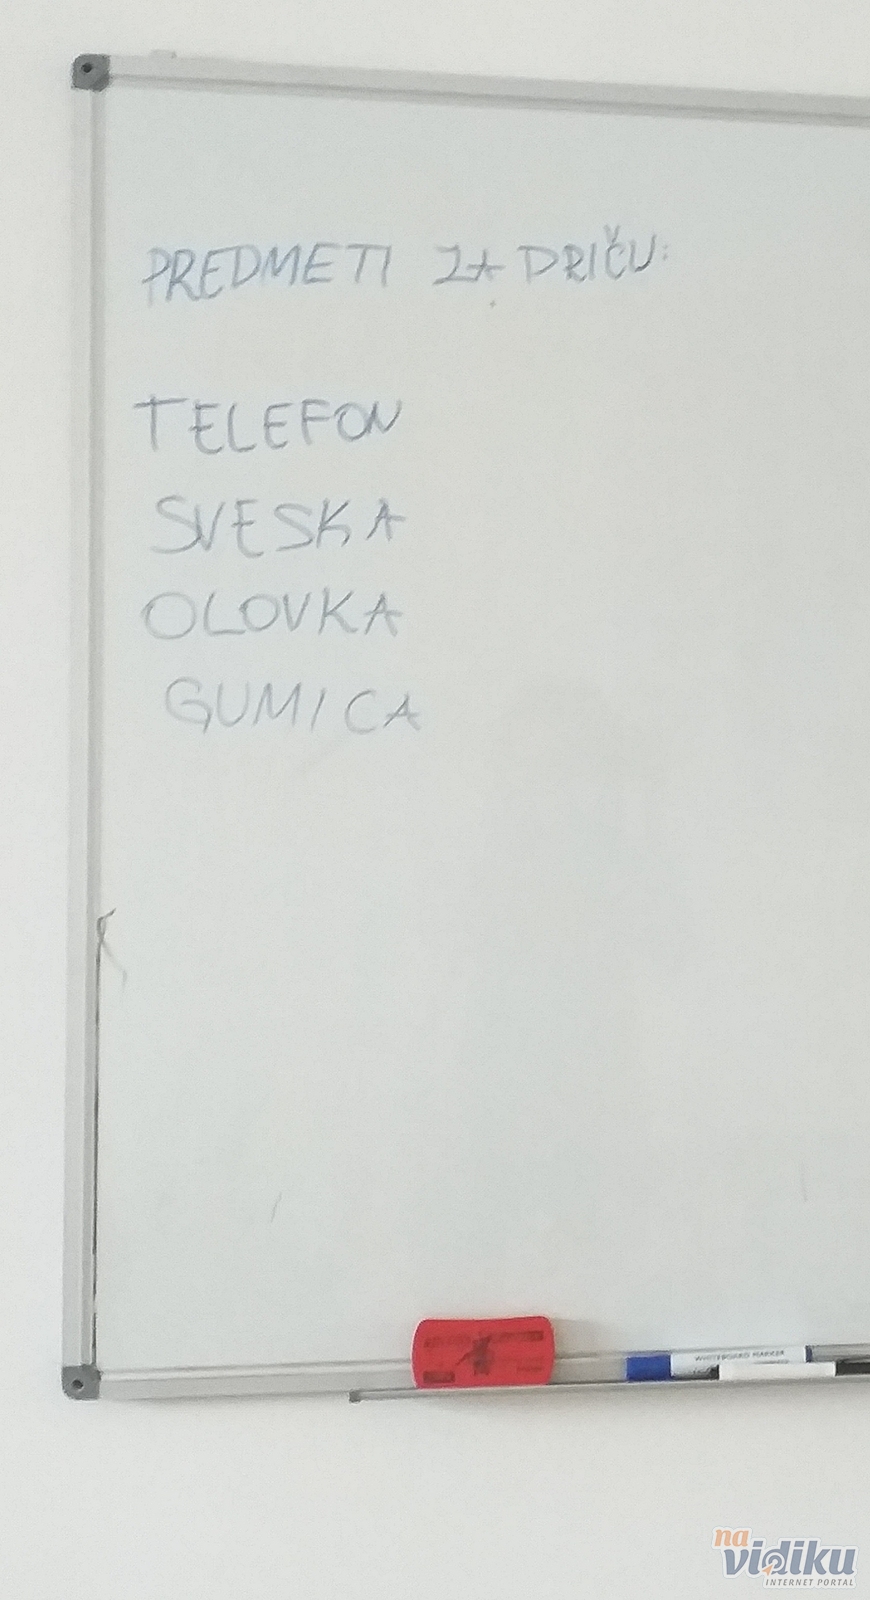 PREDMETI ZA DRIČU:
TELEFON
SVESKA
OLOVKA
GUMICA
WHITEBOARD MARKER
na
vidiku
INTERNET PORTAL